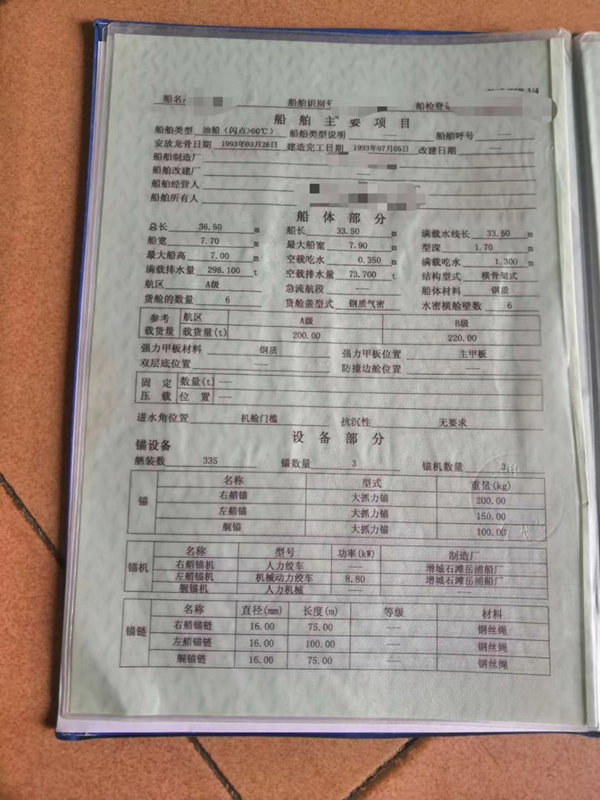 船名
船舶识别号
船检登
船舶主要项目
船舶类型 油船(闪点>60℃) 船舶类型说明 —— 船舶呼号 ——
安放龙骨日期 1993年03月26日 建造完工日期 1993年07月05日 改建日期 ——
船舶制造厂
船舶改建厂
船舶经营人
船舶所有人
船体部分
总长 36.50 m 船长 33.50 m 满载水线长 33.50 m
船宽 7.70 m 最大船宽 7.90 m 型深 1.70 m
最大船高 7.00 m 空载吃水 0.350 m 满载吃水 1.300 m
满载排水量 298.100 t 空载排水量 73.700 t 结构型式 横骨架式
航区 A级 急流航段 —— 船体材料 钢质
货舱的数量 6 货舱盖型式 钢质气密 水密横舱壁数 6
参考载货量 航区 A级 B级
载货量(t) 200.00 220.00
强力甲板材料 钢质 强力甲板位置 主甲板
双层底位置 —— 防撞边舱位置 ——
固定压载 数量(t) ——
位置 ——
进水角位置 机舱门槛 抗沉性 无要求
设备部分
锚设备
舾装数 335 锚数量 3 锚机数量 3
锚 名称 型式 重量(kg)
右艏锚 大抓力锚 200.00
左艏锚 大抓力锚 150.00
艉锚 大抓力锚 100.00
锚机 名称 型号 功率(kW) 制造厂
右艏锚机 人力绞车 —— 增城石滩岳浦船厂
左艏锚机 机械动力绞车 8.80 增城石滩岳浦船厂
艉锚机 人力机械 —— ——
锚链 名称 直径(mm) 长度(m) 等级 材料
右艏锚链 16.00 75.00 —— 钢丝绳
左艏锚链 16.00 100.00 —— 钢丝绳
艉锚链 16.00 75.00 —— 钢丝绳